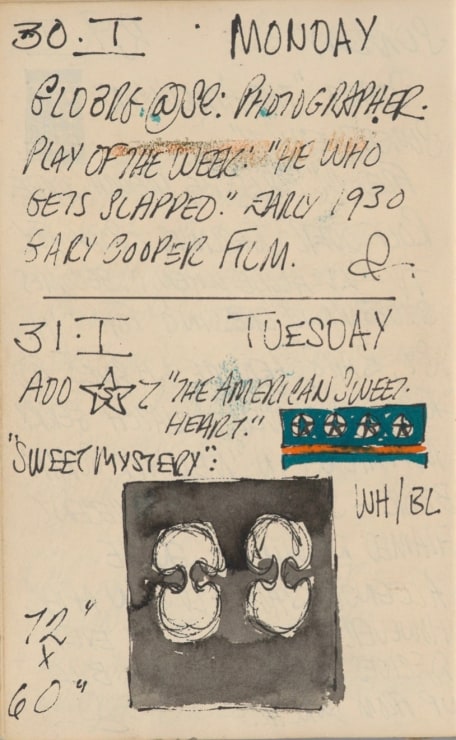 30.I · MONDAY
@ SC: PHOTOGRAPHER.
PLAY OF THE WEEK: "HE WHO
GETS SLAPPED." EARLY 1930
GARY COOPER FILM. &.
31.I TUESDAY
ADD "THE AMERICAN SWEET-
HEART."
"SWEET MYSTERY":
WH/BL
72"
x
60"